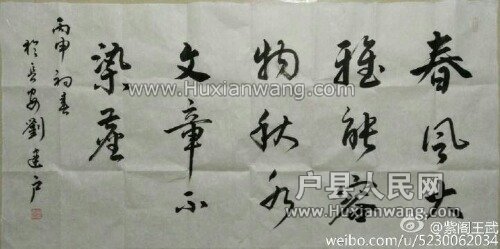 春风大
雅能容
物秋水
文章不
染尘
丙申初春
於长安刘建户
www.Huxianwang.com
户县人民网
www.Huxianwang.com
@紫阁王武
weibo.com/u/5230062034